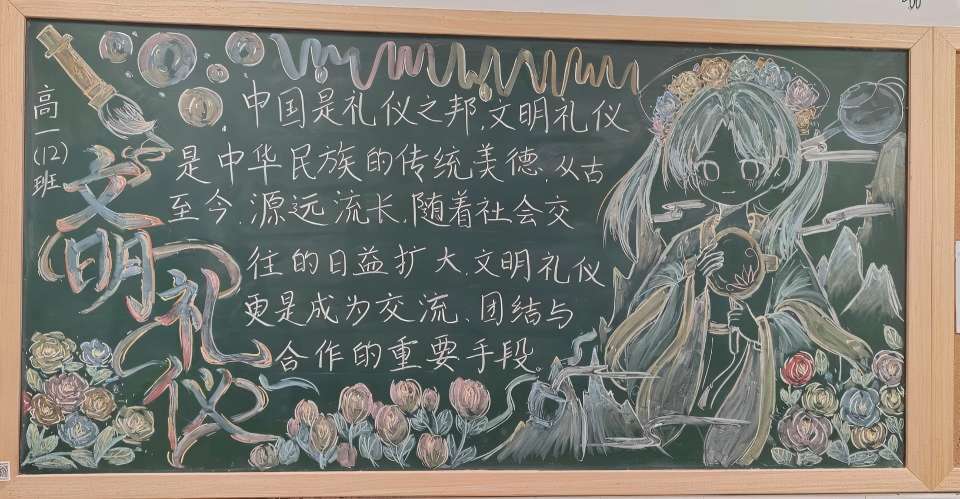 高一(12)班
文明礼仪
中国是礼仪之邦,文明礼仪
是中华民族的传统美德,从古
至今,源远流长,随着社会交
往的日益扩大,文明礼仪
更是成为交流、团结与
合作的重要手段。